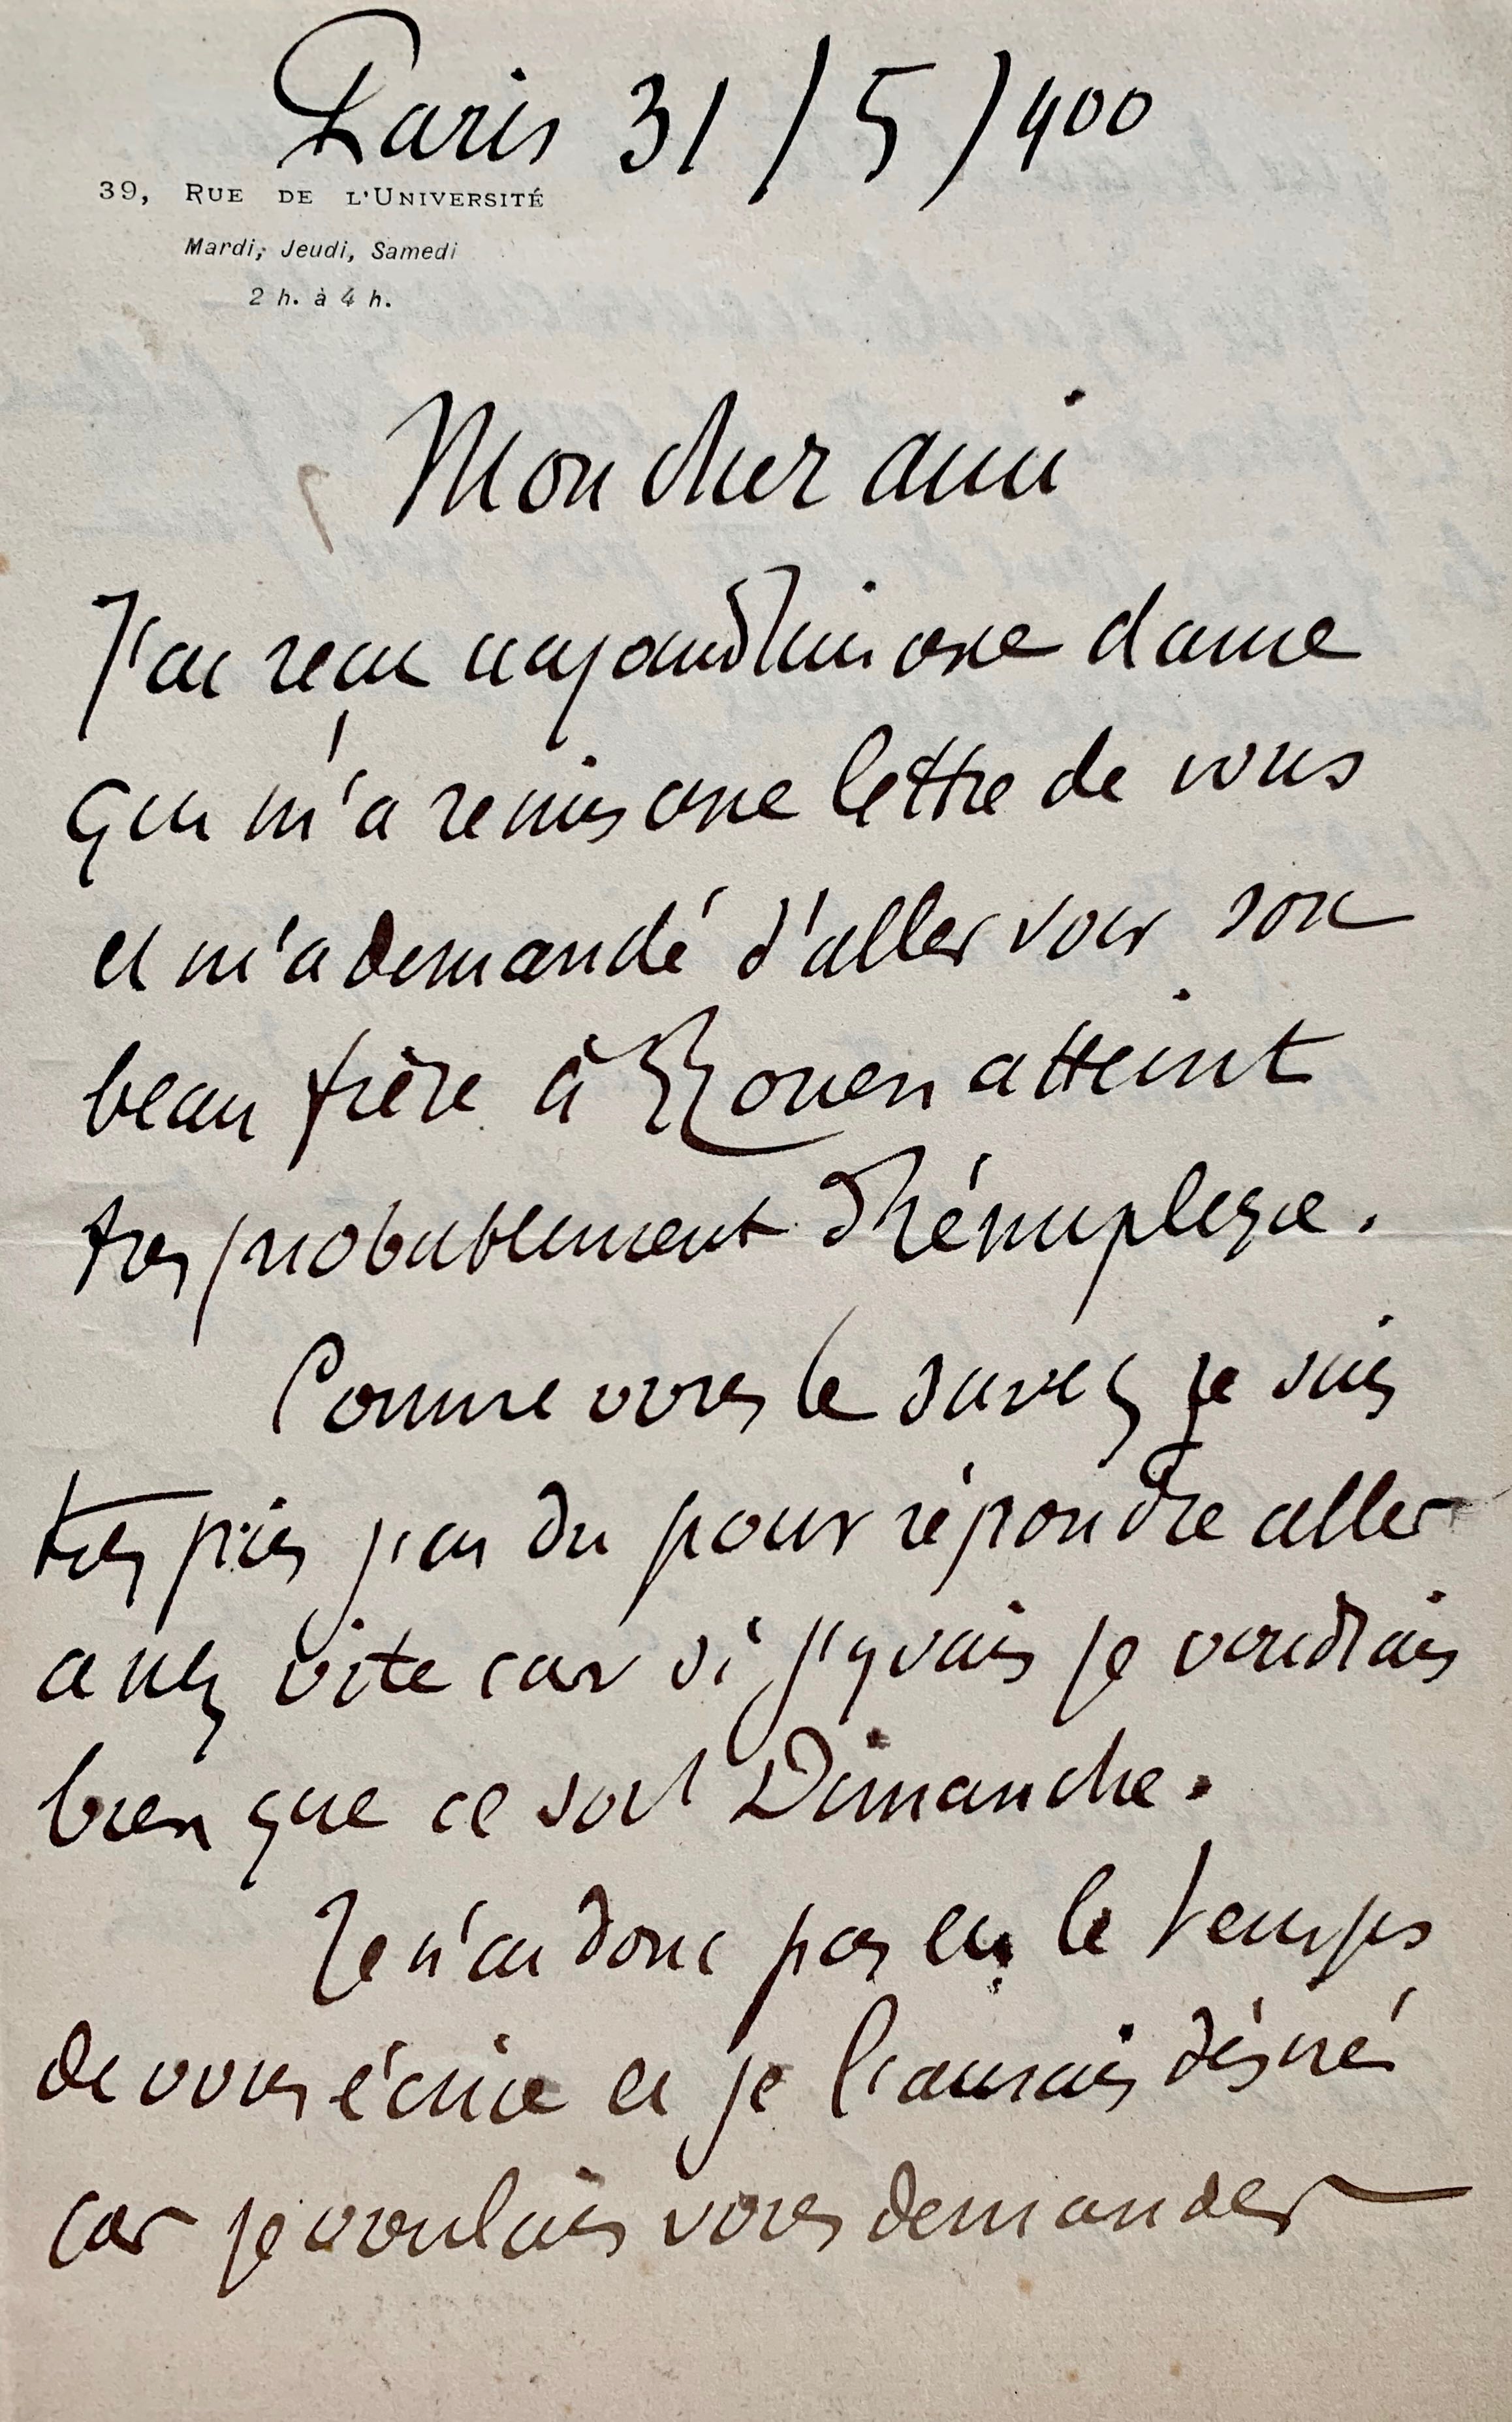 Paris 31/5/900
39, RUE DE L'UNIVERSITÉ
Mardi, Jeudi, Samedi
2 h. à 4 h.
Mon cher ami
J'ai reçu aujourd'hui une dame
qui m'a remis une lettre de vous
et m'a demandé d'aller voir son
beau frère à Rouen atteint
tres probablement d'hémiplegie.
Comme vous le savez je suis
tres pris j'ai du pour répondre aller
assez vite car si j'y vais je voudrais
bien que ce soit Dimanche.
Je n'ai donc pas eu le temps
de vous écrire et je l'aurais désiré
car je voulais vous demander